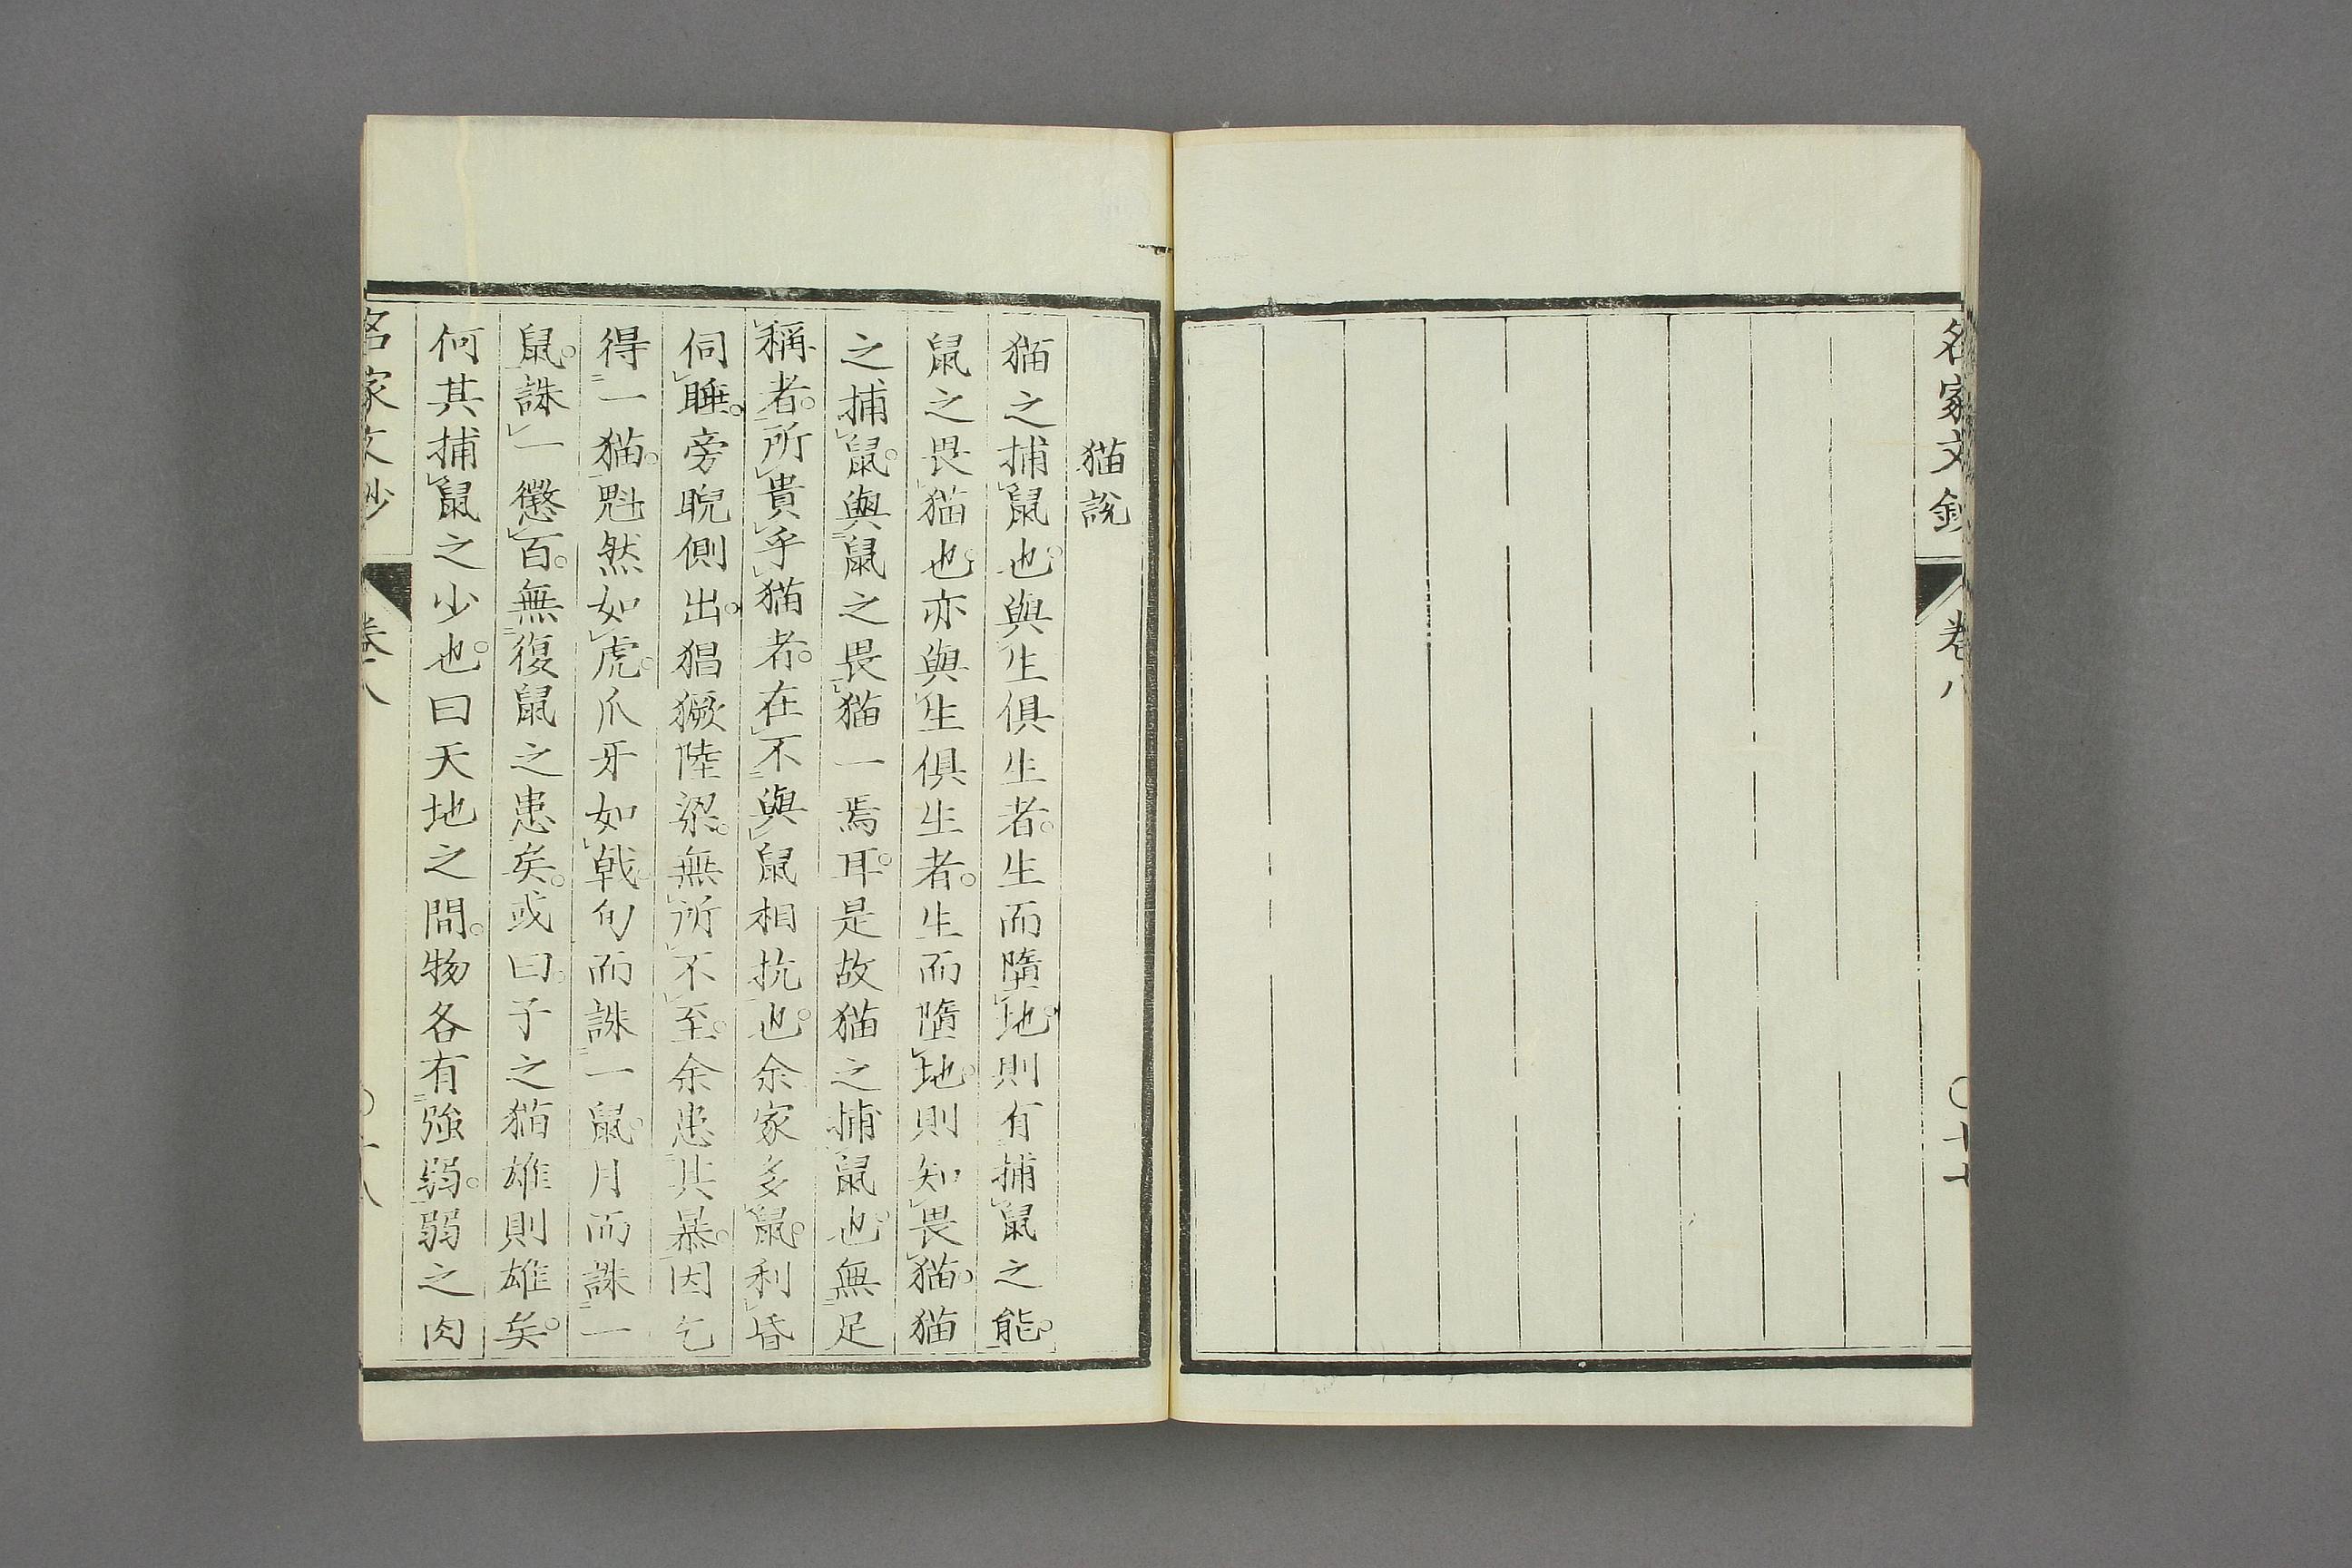 名家文鈔 卷八 〇十七
猫說
猫之捕鼠也。與生俱生者。生而墮地。則有捕鼠之能。
鼠之畏猫也。亦與生俱生者。生而墮地。則知畏猫。猫
之捕鼠。與鼠之畏猫一焉耳。是故猫之捕鼠也。無足
稱者。所貴乎猫者。在不與鼠相抗也。余家多鼠。利昏
伺睡。旁睨側出。猖獗陸梁。無所不至。余患其暴。因乞
得一猫。魁然如虎。爪牙如戟。旬而誅一鼠。月而誅一
鼠。誅一懲百。無復鼠之患矣。或曰。子之猫雄則雄矣。
何其捕鼠之少也。曰天地之間。物各有強弱。弱之肉
名家文鈔 卷八 〇十八